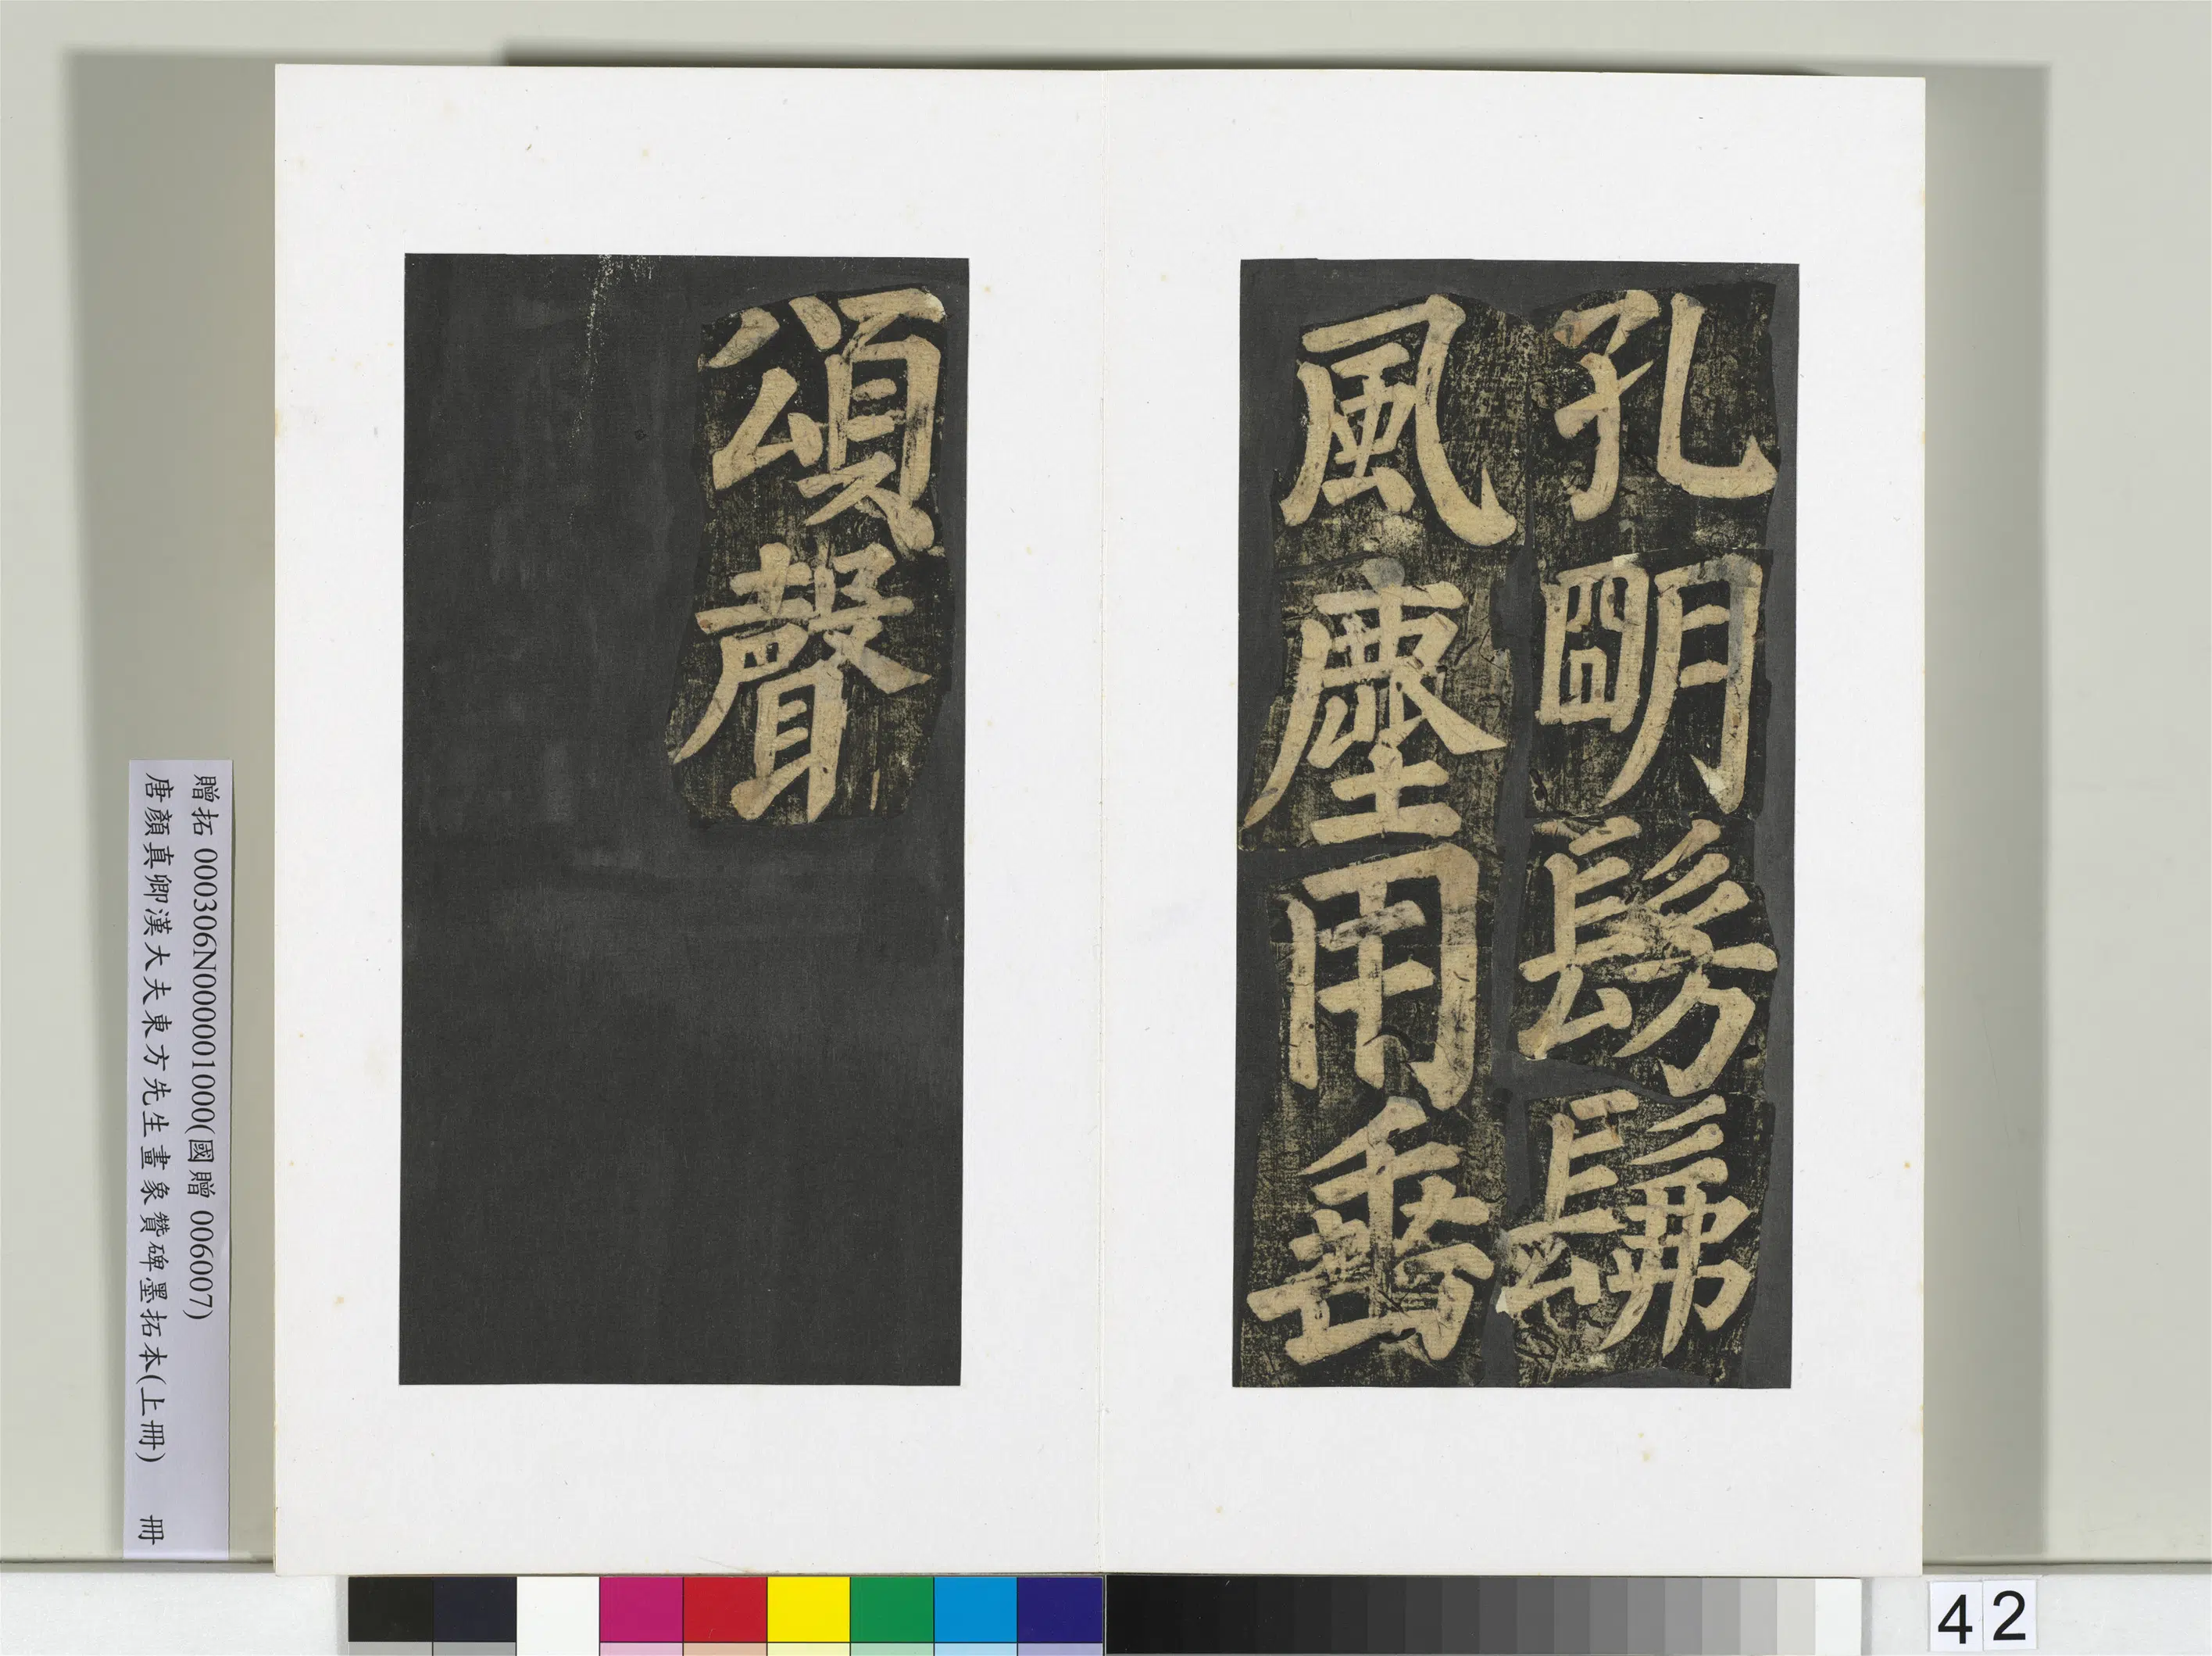 孔明髣髴
風塵用垂
頌聲
贈拓 000306N000001000(國贈 006007)
唐顏真卿漢大夫東方先生畫象贊碑墨拓本(上冊) 冊
42